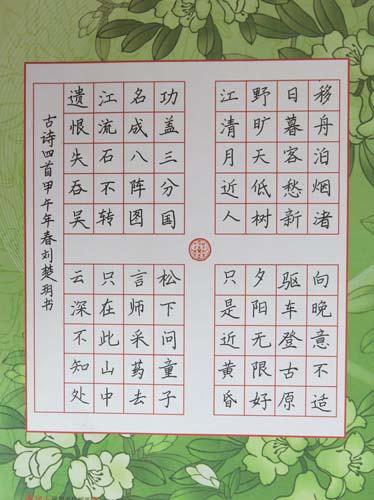 移舟泊烟渚
日暮客愁新
野旷天低树
江清月近人
功盖三分国
名成八阵图
江流石不转
遗恨失吞吴
向晚意不适
驱车登古原
夕阳无限好
只是近黄昏
松下问童子
言师采药去
只在此山中
云深不知处
古诗四首甲午年春刘楚玥书